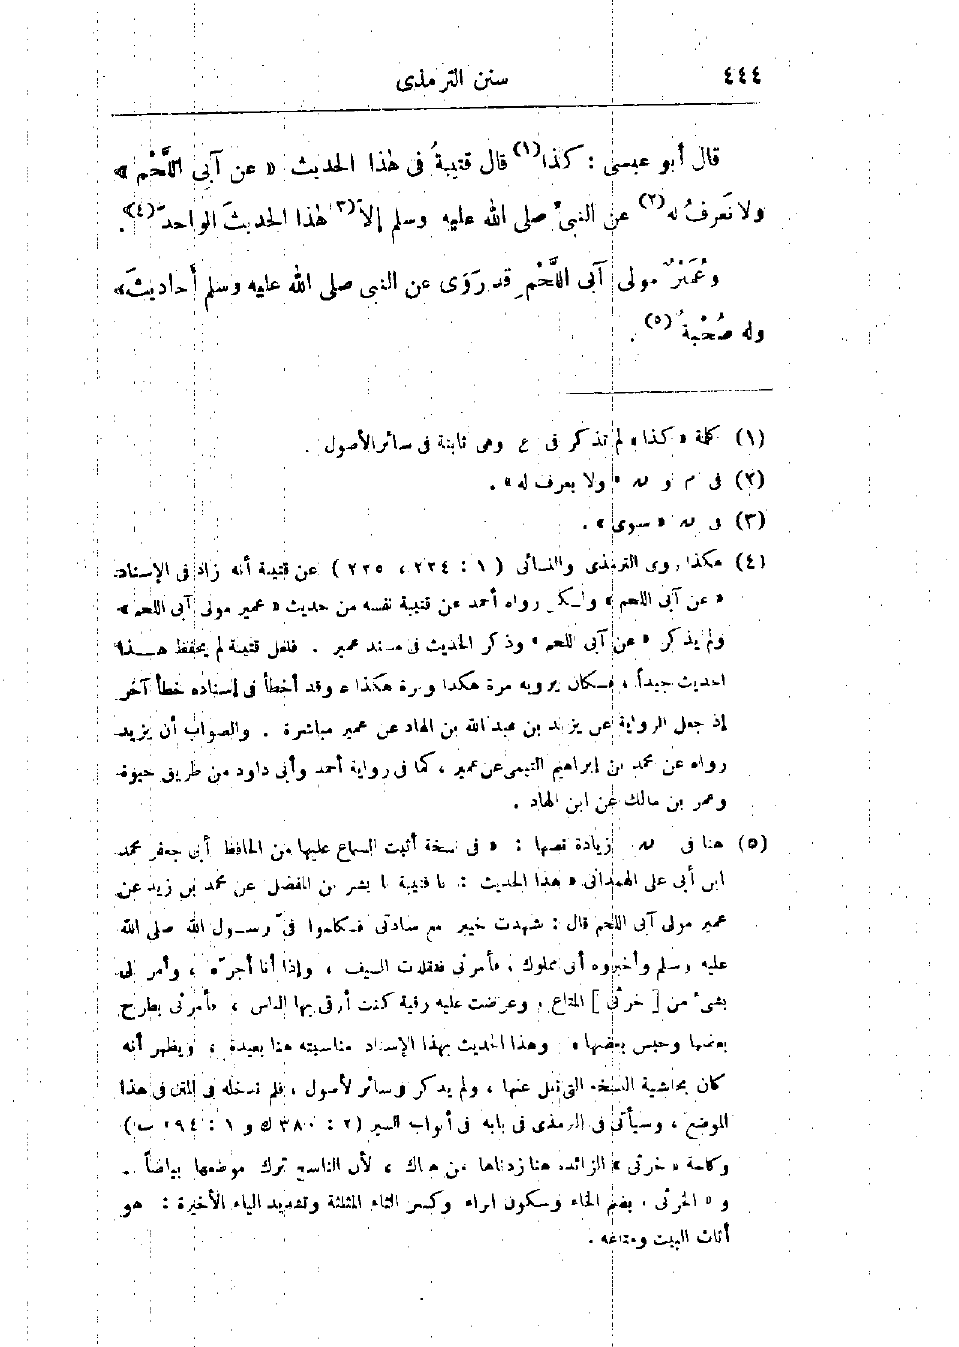 ٤٤٤
سنن الترمذى
قال أبو عيسى : كذا(١) قال قتيبةُ فى هٰذا الحديث « عن آبى اللَّحْم »
ولا نَعرفُ له(٢) عن النبىِّ صلى الله عليه وسلم إلاَّ(٣) هٰذا الحديثَ الواحدَ(٤) .
وعُمَيْرٌ مولى آبى اللَّحْمِ قد رَوَى عن النبى صلى الله عليه وسلم أحاديثَ،
وله صُحْبةٌ(٥) .
(١) كلمة « كذا » لم تذكر فى ع وهى ثابتة فى سائر الأصول .
(٢) فى م و ںہ « ولا يعرف له » .
(٣) فى ںہ « سوى » .
(٤) هكذا روى الترمذى والنسائى ( ١ : ٢٢٤ ، ٢٢٥ ) عن قتيبة أنه زاد فى الإسناد
« عن آبى اللحم » ولكن رواه أحمد عن قتيبة نفسه من حديث « عمير مولى آبى اللحم »
ولم يذكر « عن آبى اللحم » وذكر الحديث فى مسند عمير . فلعل قتيبة لم يحفظ هــذا
الحديث جيداً ، فكان يرويه مرة هكذا ومرة هكذا ، وقد أخطأ فى إسناده خطأ آخر
إذ جعل الرواية عن يزيد بن عبد الله بن الهاد عن عمير مباشرة . والصواب أن يزيد
رواه عن محمد بن إبراهيم التيمى عن عمير ، كما فى رواية أحمد وأبى داود من طريق حيوة
وعمر بن مالك عن ابن الهاد .
(٥) هنا فى ںہ زيادة نصها : « فى نسخة أثبت السماع عليها من الحافظ أبى جعفر محمد
ابن أبى على الهمدانى « هذا الحديث : نا قتيبة نا بشر بن المفضل عن محمد بن زيد عن
عمير مولى آبى اللحم قال : شهدت خيبر مع سادتى فكلموا فىّ رسـول الله صلى الله
عليه وسلم وأخبروه أنى مملوك ، فأمرنى فقلدت السيف ، وإذا أنا أجرّه ، وأمر لى
بشىء من [ خرثى ] المتاع ، وعرضت عليه رقية كنت أرقى بها الناس ، فأمرنى بطرح
بعضها وحبس بعضها » وهذا الحديث بهذا الإسناد مناسبته هنا بعيدة ، ويظهر أنه
كان بحاشية النسخة التى نقل عنها ، ولم يذكر فى سائر الأصول ، فلم ندخله فى المتن فى هذا
الموضع ، وسيأتى فى الترمذى فى بابه فى أبواب السير (٢ : ٣٨٠ ك و ١ : ٢٩٤ ب)
وكلمة « خرثى » الزائدة هنا زدناها من هناك ، لأن الناسخ ترك موضعها بياضاً .
و « الخرثى » بضم الخاء وسكون الراء وكسر الثاء المثلثة وتشديد الياء الأخيرة : هو
أثاث البيت ومتاعه .